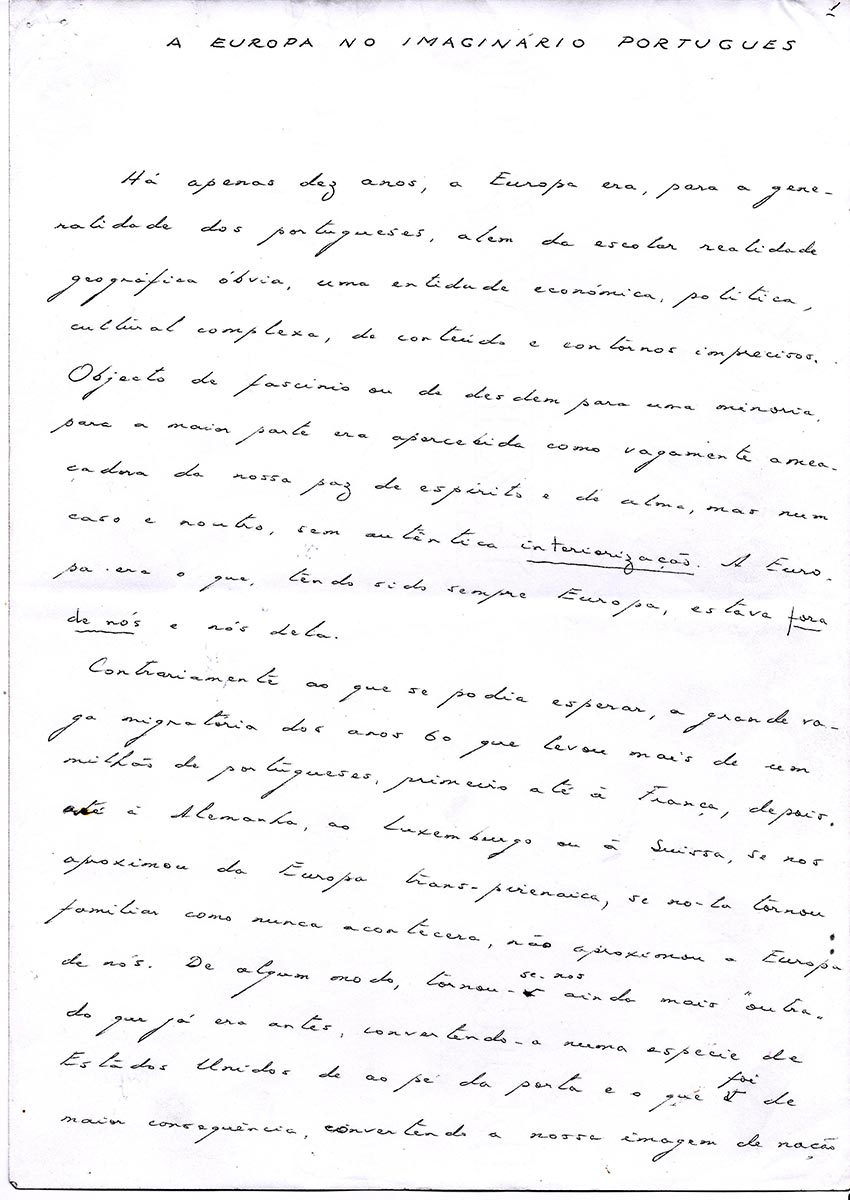 1
A EUROPA NO IMAGINÁRIO PORTUGUES
Há apenas dez anos, a Europa era, para a gene-
ralidade dos portugueses, alem da escolar realidade
geográfica óbvia, uma entidade económica, politica,
cultural complexa, de conteúdo e contornos imprecisos.
Objecto de fascinio ou de desdem para uma minoria,
para a maior parte era apercebida como vagamente amea-
çadora da nossa paz de espírito e de alma, mas num
caso e noutro, sem autêntica interiorização. A Euro-
pa era o que, tendo sido sempre Europa, estava fora
de nós e nós dela.
Contrariamente ao que se podia esperar, a grande va-
ga migratória dos anos 60 que levou mais de um
milhão de portugueses, primeiro até à França, depois
até à Alemanha, ao Luxemburgo ou à Suissa, se nos
aproximou da Europa trans-pirenaica, se no-la tornou
familiar como nunca acontecera, não aproximou a Europa
de nós. De algum modo, tornou-se-nos ainda mais "outra"
do que já era antes, convertendo-a numa espécie de
Estados Unidos de ao pé da porta e o que foi de
maior consequência, convertendo a nossa imagem de nação